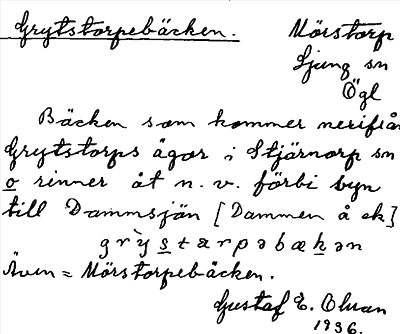 Grytstorpebäcken.
Mörstorp
Ljung sn
Ögl
Bäcken som kommer nerifrån
Grytstorps ägor i Stjärnorp sn
o rinner åt n. v. förbi byn
till Dammsjön [Dammen å ek]
grỳstarpəbækən
Även = Mörstorpebäcken.
Gustaf E. Olsson
1936.